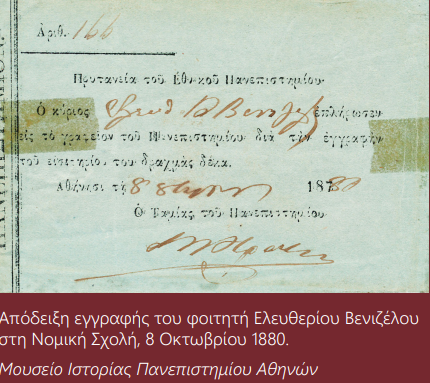 Ἀριθ. 166
Πρυτανεία τοῦ Ἐθνικοῦ Πανεπιστημίου
Ὁ κύριος Ἐλευθ Κ Βενιζέλ ἐπλήρωσεν
εἰς τὸ γραφεῖον τοῦ Πανεπιστημίου διὰ τὴν ἐγγραφὴν
τοῦ εἰσιτηρίου του δραχμὰς δέκα.
Ἀθήνησι τῇ 8 8βρίου 1880
Ὁ Ταμίας τοῦ Πανεπιστημίου
Απόδειξη εγγραφής του φοιτητή Ελευθερίου Βενιζέλου
στη Νομική Σχολή, 8 Οκτωβρίου 1880.
Μουσείο Ιστορίας Πανεπιστημίου Αθηνών